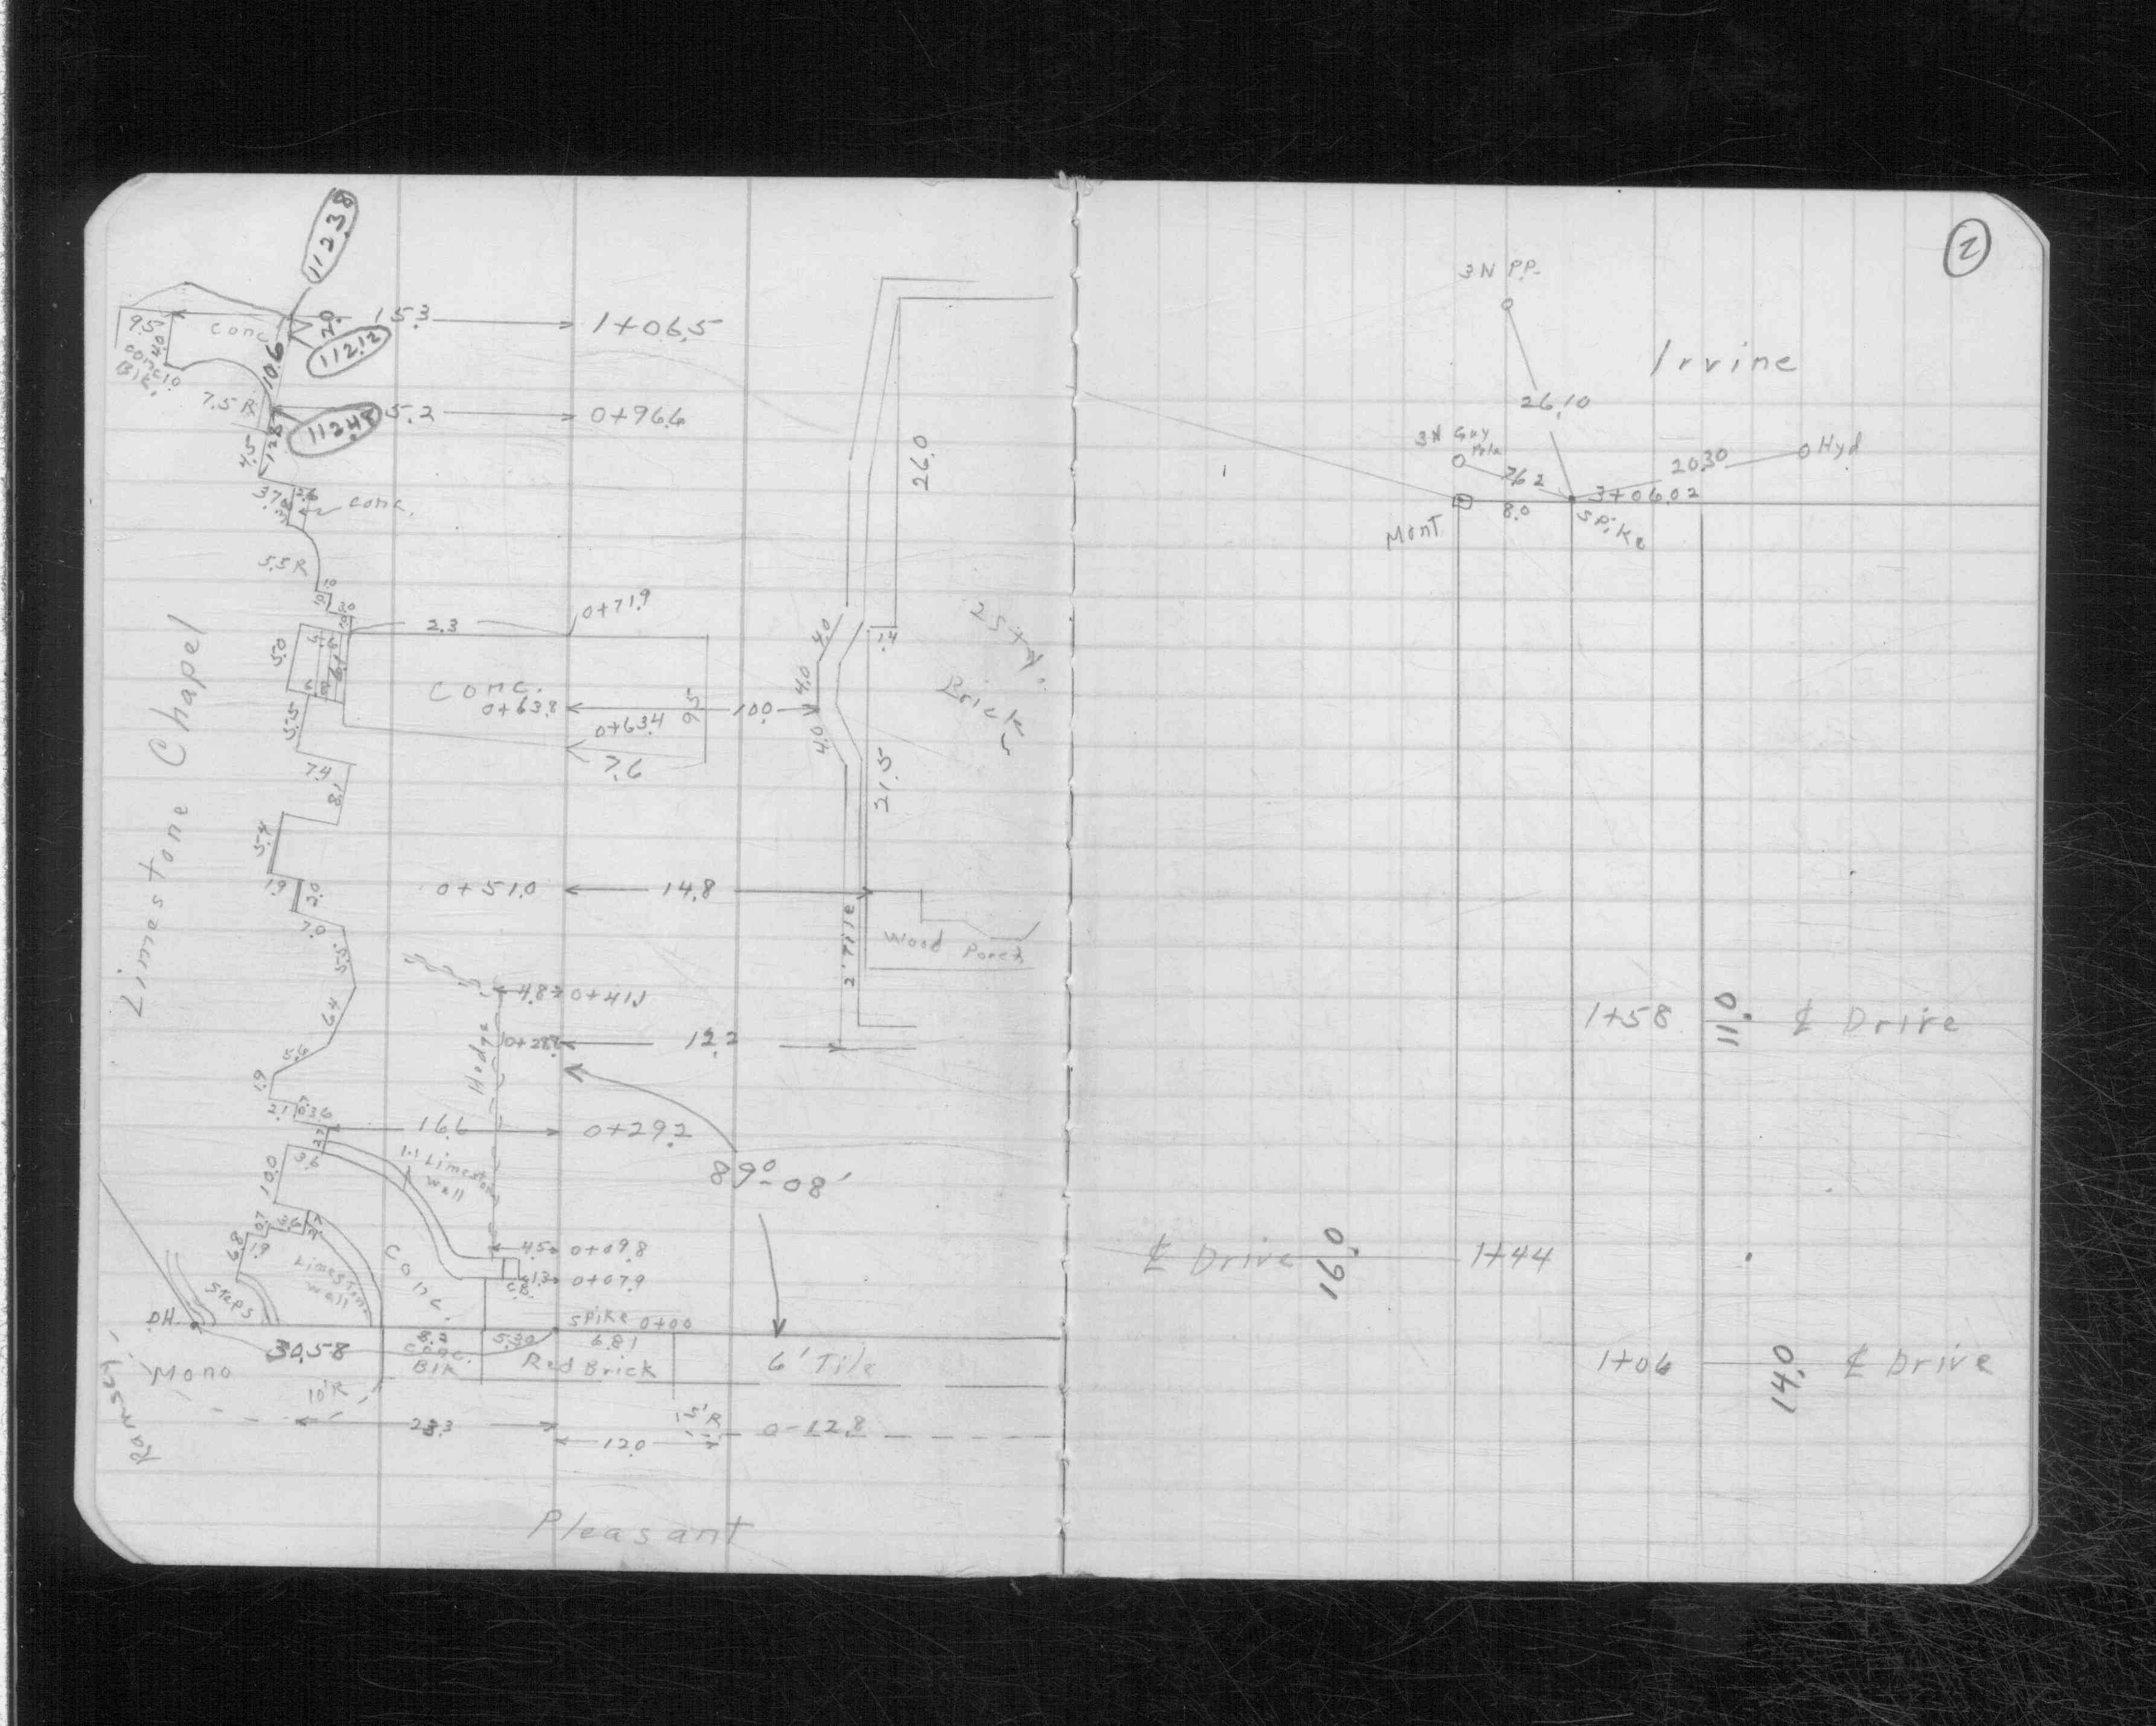 112.38
9.5
4.0
conc.
2.0
15.3
1+06.5
112.12
conc
Blk.
1.0
10.6
7.5 R
5.2
0+96.6
112.48
4.5
12.8
3.7
2.6
conc.
5.5 R
1.0
3.0
2.3
0+71.9
5.0
6.1
4.0
1.4
26.0
2 Sty.
Brick
Conc.
0+63.8
9.5
10.0
4.0
0+63.4
7.6
4.0
5.5
7.4
8.1
21.5
5.4
Limestone Chapel
1.9
2.0
0+51.0
14.8
7.0
5.5
2' Tile
Wood Porch
4.8
0+41.1
6.4
Hedge
12.2
5.4
1.9
2.1
3.6
16.6
0+29.2
2.7
3.6
1.1 Limestone
wall
89°-08'
10.0
0.7
3.6
6.8
1.9
Limestone
wall
Conc.
4.5
0+09.8
1.3
0+07.9
C.B.
Steps
D.H.
Spike 0+00
30.58
8.2
5.30
6.81
Conc.
Blk
Red Brick
6' Tile
Mono
10' R
Ramsey
28.3
15' R
0-12.8
12.0
Pleasant
2
3N P.P.
Irvine
26.10
3N Guy
Pole
7.62
20.30
Hyd
3+06.02
8.0
Spike
Mont
1+58
11.0
℄ Drive
℄ Drive
16.0
1+44
1+06
14.0
℄ Drive